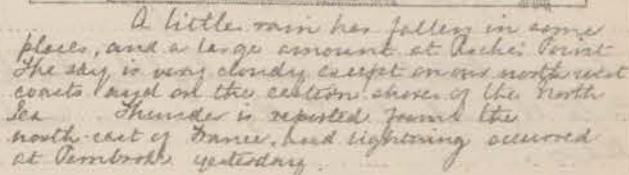 A little rain has fallen in some
places, and a large amount at Roche's Point
The sky is very cloudy except on our north west
coasts and on the eastern shores of the North
Sea Thunder is reported from the
north-east of France, and lightning occurred
at Pembroke yesterday.